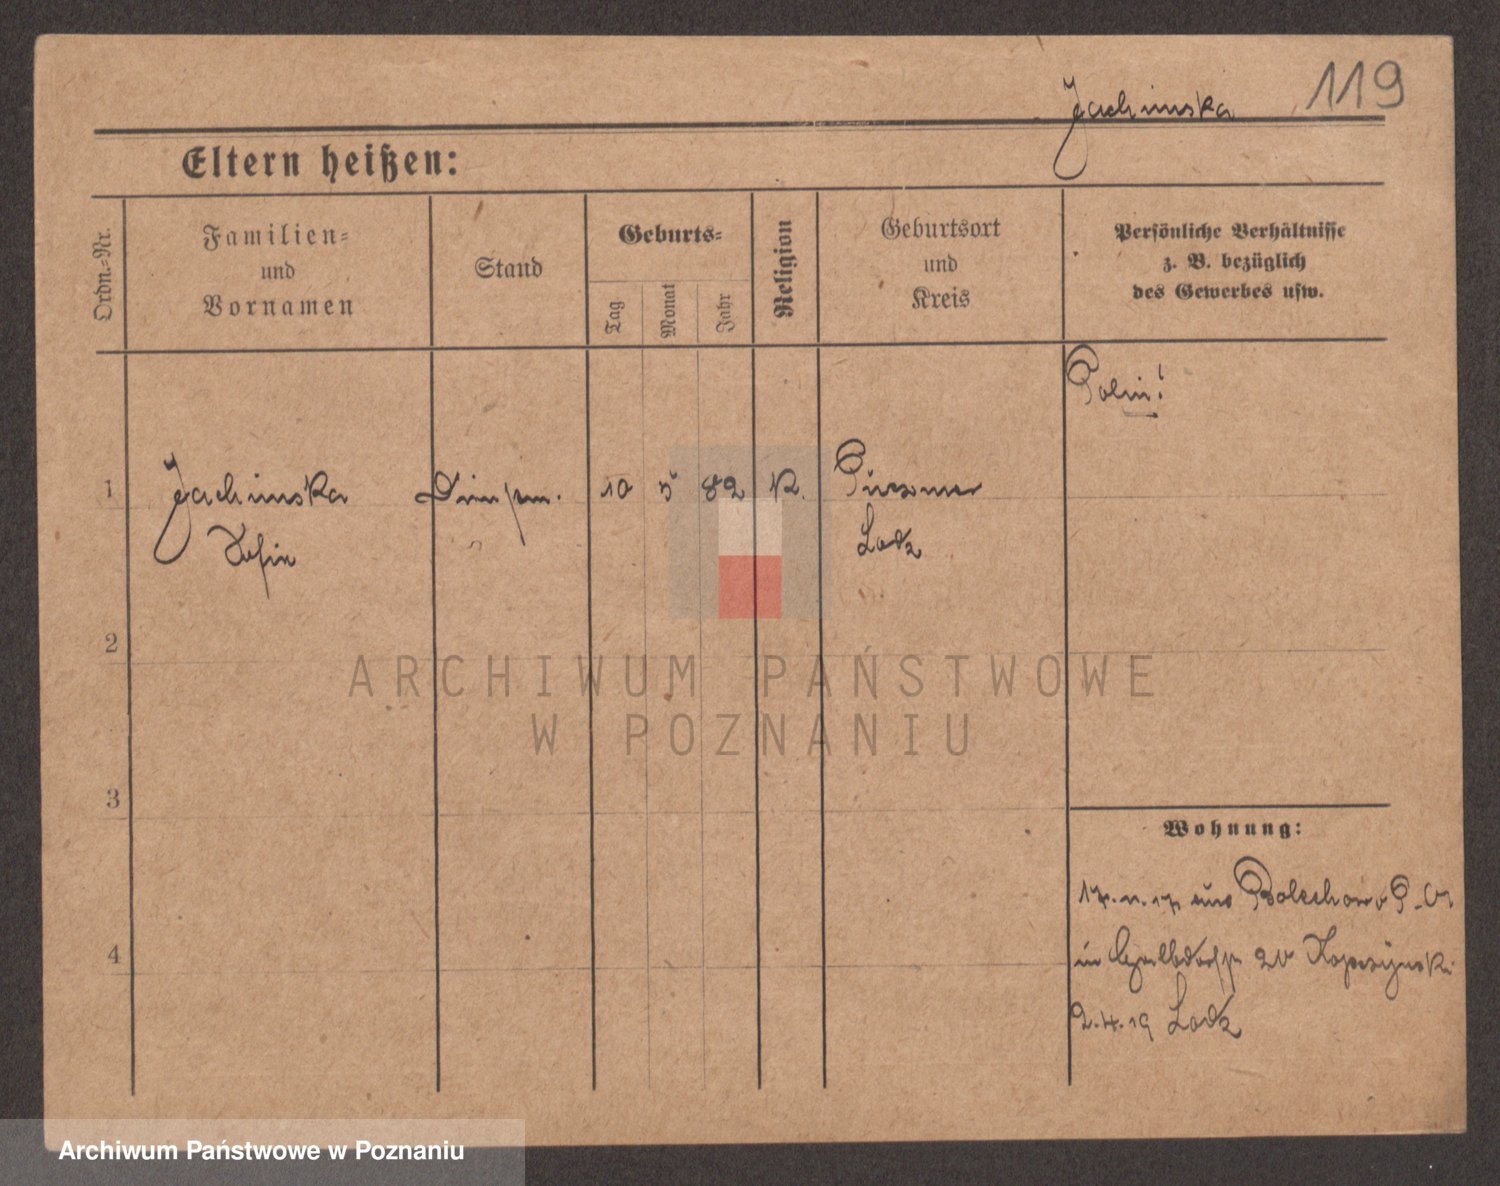 119
Jachimska
Eltern heißen:
Ordn.-Nr.
Familien-
und
Vornamen
Stand
Geburts-
Tag
Monat
Jahr
Religion
Geburtsort
und
Kreis
Persönliche Verhältnisse
z. B. bezüglich
des Gewerbes usw.
Polin!
1 Jachimska 10 5 82 K.
Sofie Lodz
2
ARCHIWUM PAŃSTWOWE
W POZNANIU
3
Wohnung:
17.11.17 aus Bolechowo P-O
4
in 20
2.4.19 Lodz
Archiwum Państwowe w Poznaniu